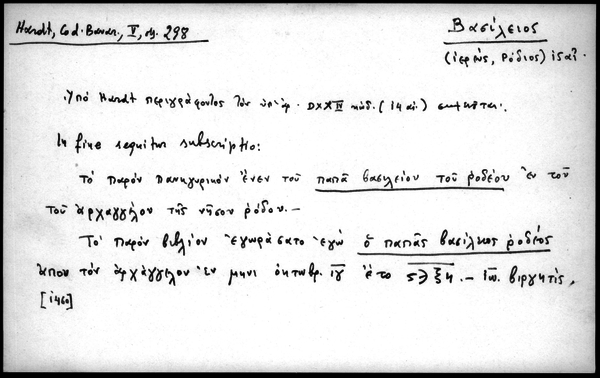 Hardt, Cod. Bavar., V, σ. 298
Βασίλειος
(ἱερεύς, Ῥόδιος) ις αἰ.
Ὑπό Hardt περιγράφοντος τὸν ὑπ' ἀρ. DXXIV κώδ. (ιη αἰ.) σημειοῦται.
In fine sequitur subscriptio:
τὸ παρὸν πανηγυρικὸν ἔνεν τοῦ παπᾶ βασιλείου τοῦ ῥοδέου ἐν τοῦ
τοῦ ἀρχαγγέλου τῆς νήσου ῥόδου.—
Τὸ παρὸν βιβλίον ἐγωράσατο ἐγώ ὁ παπᾶς βασίληος ῥοδέος
ἀπου τὸν ἀρχάγγελον ἐν μηνι οκτωβρ. ιγ ἐτο ςλξη.— ιω. βιργητις,
[1460]